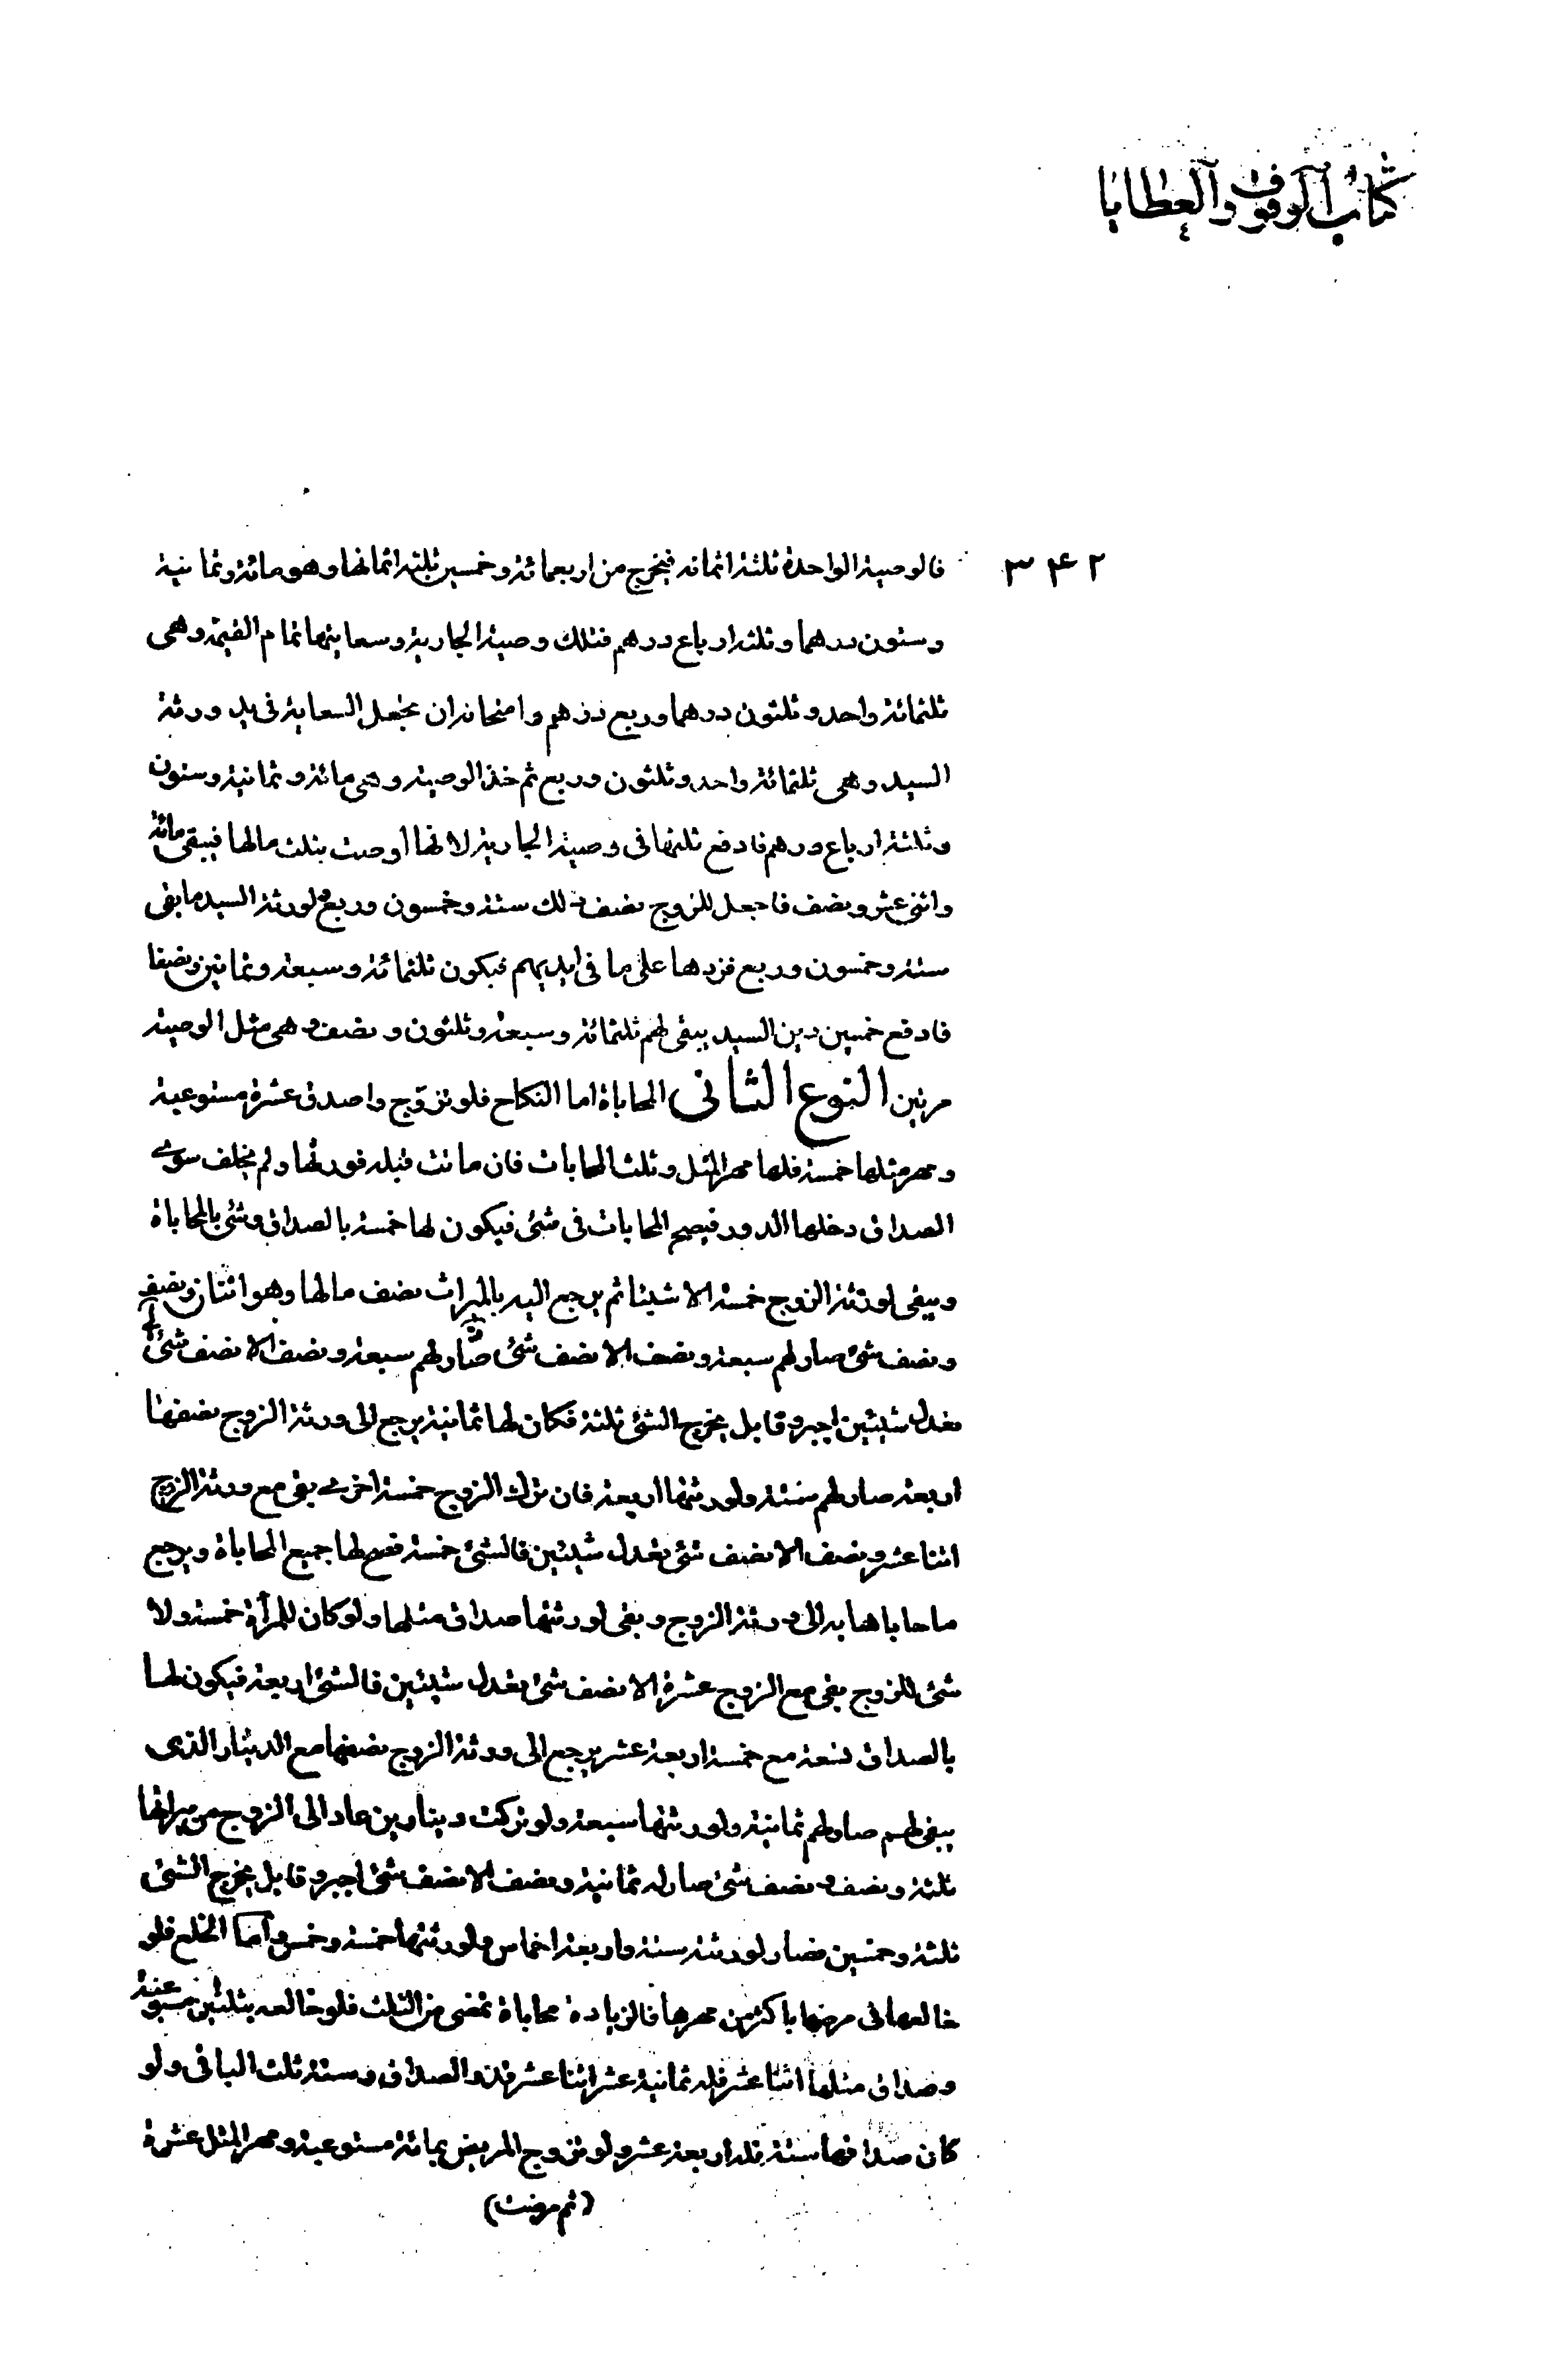 كتاب الوقوف والعطايا
٣٤٢
فالوصية الواحدة ثلثة اثمانه فيخرج من اربعمائة وخمسين ثلثة اثمانها وهو مائة وثمانية
وستون درهما وثلثة ارباع درهم فتلك وصية الجارية وسعايتها تمام القيمة وهى
ثلثمائة واحد وثلثون درهما وربع درهم وامتحانه ان تجعل السعاية فى يد ورثة
السيد وهى ثلثمائة واحد وثلثون وربع ثم خذ الوصية وهى مائة وثمانية وستون
وثلثة ارباع درهم فادفع ثلثها فى وصية الجارية لانها أوصت بثلث مالها فيبقى مائة
واثنى عشر ونصف فاجعل للزوج نصف ذلك ستة وخمسون وربع ولورثة السيد ما بقى
ستة وخمسون وربع فزدها على ما فى ايديهم فيكون ثلثمائة وسبعة وثمانين ونصفا
فادفع خمسين دين السيد يبقى لهم ثلثمائة وسبعة وثلثون ونصف وهى مثل الوصية
مرتين النوع الثانى المحاباة اما النكاح فلو تزوّج واصدق عشرة مستوعبة
ومهر مثلها خمسة فلها مهر المثل وثلث المحابات فان ماتت قبله فورثها ولم يخلف سوى
الصداق دخلها الدور فيصح المحابات فى شئ فيكون لها خمسة بالصداق وشئ بالمحاباة
ويبقى لورثة الزوج خمسة الا شيئا ثم يرجع اليه بالميراث نصف مالها وهو اثنان ونصف
ونصف شئ صار لهم سبعة ونصف الا نصف شئ صار لهم سبعة ونصف الا نصف شئ
يعدل شيئين اجبر وقابل يخرج الشئ ثلثة فكان لها ثمانية يرجع الى ورثة الزوج نصفها
اربعة صار لهم ستة ولورثتها اربعة فان ترك الزوج خمسة اخرى بقى مع ورثة الزوج
اثنا عشر ونصف الا نصف شئ يعدل شيئين فالشئ خمسة فصح لها جميع المحاباة ويرجع
ما حاباها به الى ورثة الزوج وبقى لورثتها صداق مثلها ولو كان للمرأة خمسة ولا
شئ للزوج بقى مع الزوج عشرة الا نصف شئ يعدل شيئين فالشئ اربعة فيكون لها
بالصداق تسعة مع خمسة اربعة عشر يرجع الى ورثة الزوج نصفها مع الدينار الذى
بقى لهم صار لهم ثمانية ولورثتها سبعة ولو تركت دينارين عاد الى الزوج من ميراثها
ثلثة ونصف ونصف شئ صار له ثمانية ونصف الا نصف شئ اجبر وقابل يخرج الشئ
ثلثة وخمسين فصار لورثته ستة واربعة اخماس ولورثتها خمسة وخمس وأما الخلع فلو
خالعها فى مرضها باكثر من مهرها فالزيادة محاباة تمضى من الثلث فلو خالعه بثلثين مستوعبة
وصداق مثلها اثنا عشر فله ثمانية عشر اثنا عشر قدر الصداق وستة ثلث الباقى ولو
كان صداقها ستة فله اربعة عشر ولو تزوج المريض بمائة مستوعبة ومهر المثل عشرة
(ثم مرضت)